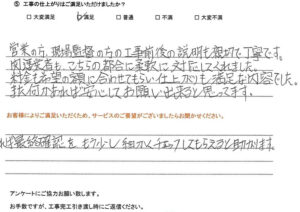 ⑤ 工事の仕上がりはご満足いただけましたか？
□大変満足 ☑満足 □普通 □不満 □大変不満
営業の方、現場監督の方の工事前後の説明も親切、丁寧です。
関連業者も、こちらの都合に柔軟に対応してくれました。
料金も希望の額に合わせてもらい仕上がりも満足な内容でした。
何かあれば安心してお願い出来ると思ってます。
お客様によりご満足いただくため、サービスのご要望がございましたらお聞かせください。
最終確認を、もう少し細かくチェックしてもらえると助かります。
アンケートにご協力お願い致します。
お手数ですが、工事完工引き渡し時にご返信ください。